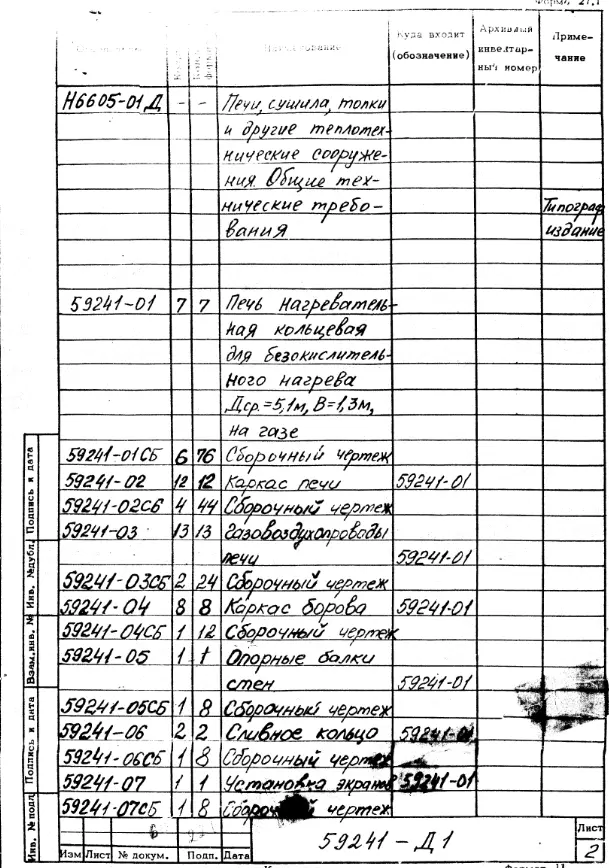 Форма 27.1
Куда входит (обозначение) Архивный инвентар- ный номер Приме- чание
Н6605-01Д - - Печи, сушила, топки
и другие теплотех-
нические сооруже-
ния. Общие тех-
нические требо- Типограф.
вания издание
59241-01 7 7 Печь нагреватель-
ная кольцевая
для безокислитель-
ного нагрева
Дср.=5,1м, В=1,3м,
на газе
59241-01СБ 6 76 Сборочный чертеж
59241-02 12 12 Каркас печи 59241-01
59241-02СБ 4 44 Сборочный чертеж
59241-03 13 13 Газовоздухопроводы
печи 59241-01
59241-03СБ 2 24 Сборочный чертеж
59241-04 8 8 Каркас борова 59241-01
59241-04СБ 1 12 Сборочный чертеж
59241-05 1 1 Опорные балки
стен 59241-01
59241-05СБ 1 8 Сборочный чертеж
59241-06 2 2 Сливное кольцо 59241-01
59241-06СБ 1 8 Сборочный чертеж
59241-07 1 1 Установка экранов 59241-01
59241-07СБ 1 8 Сборочный чертеж
Инв. № подл. Подпись и дата Взам. инв. № Инв. № дубл. Подпись и дата
Изм Лист № докум. Подп. Дата
59241-Д1
Лист
2